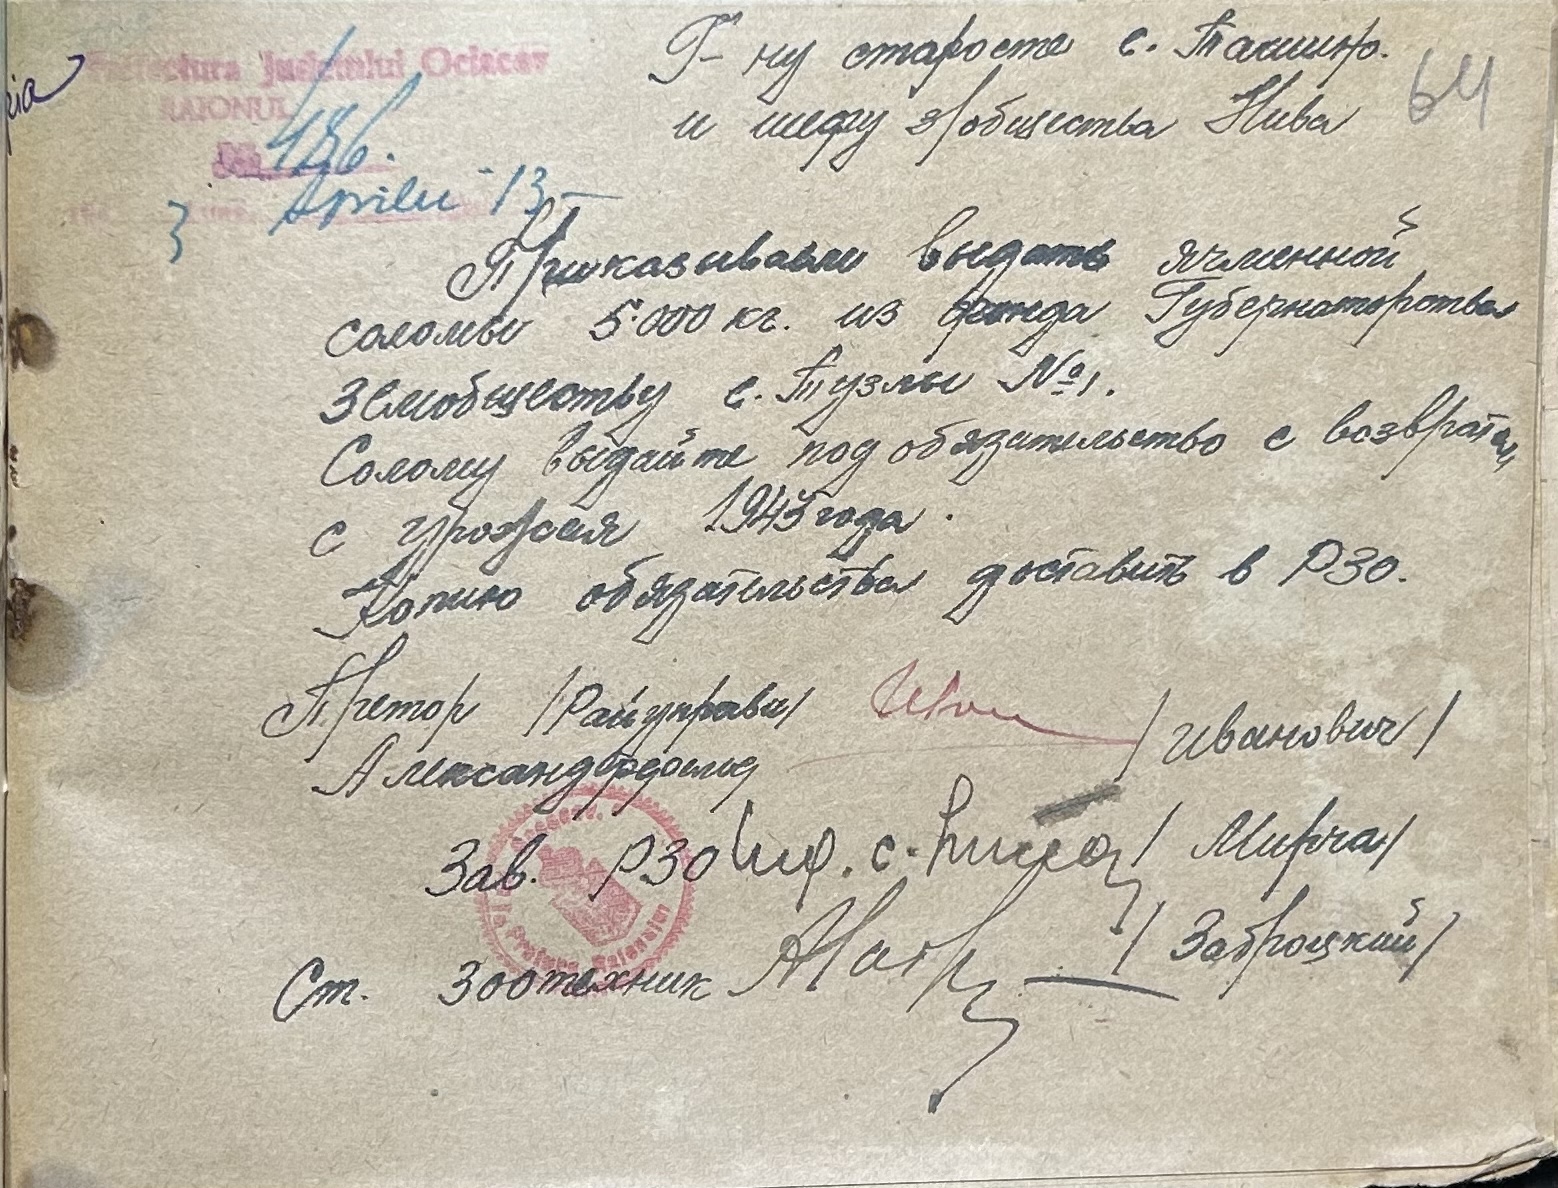 Prefectura Județului Oceacov
RAIONUL
No 486.
3 Aprilie 13
64
Г-ну старосте с. Ташино.
и шефу з/общества Нива
Приказываем выдать ячменной
соломы 5.000 кг. из фонда Губернаторства
Земобществу с. Тузлы №1.
Солому выдайте под обязательство с возвратом
с урожая 1943 года.
Копию обязательства доставить в РЗО.
Претор /Райуправы/ /Иванович/
Александрфельд
Зав. РЗО /Мирча/
Ст. Зоотехник /Заброцкий/